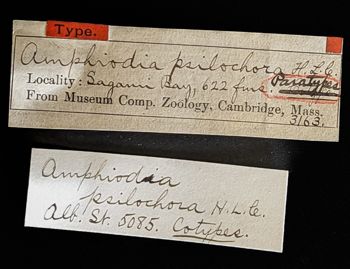 Type.
Amphiodia psilochora H.L.C.
Locality: Sagami Bay, 622 fms. Paratype
From Museum Comp. Zoology, Cambridge, Mass.
3163.
Amphiodia
psilochora H.L.C.
Alb. St. 5085. Cotypes.